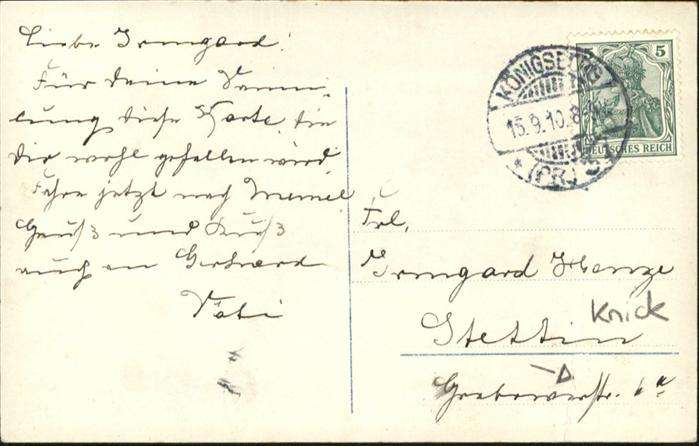 Liebe Irmgard!
Für deine Samm-
lung diese Karte die
dir wohl gefallen wird
Fahre jetzt nach Memel
Gruß und Kuß
auch an Gerhard
Vati
KÖNIGSBERG
15.9.10.8
* (PR.) 5 *
5
DEUTSCHES REICH
Frl.
Irmgard Henze
Knick
Stettin
Grabowerstr. 6a